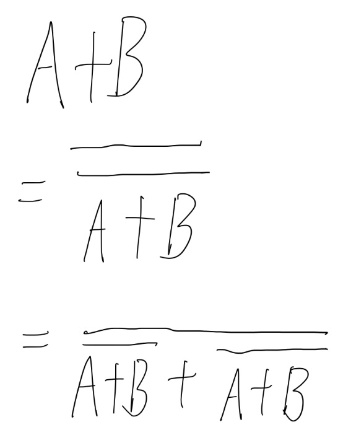 A+B
= \overline{\overline{A+B}}
= \overline{\overline{A+B} + \overline{A+B}}